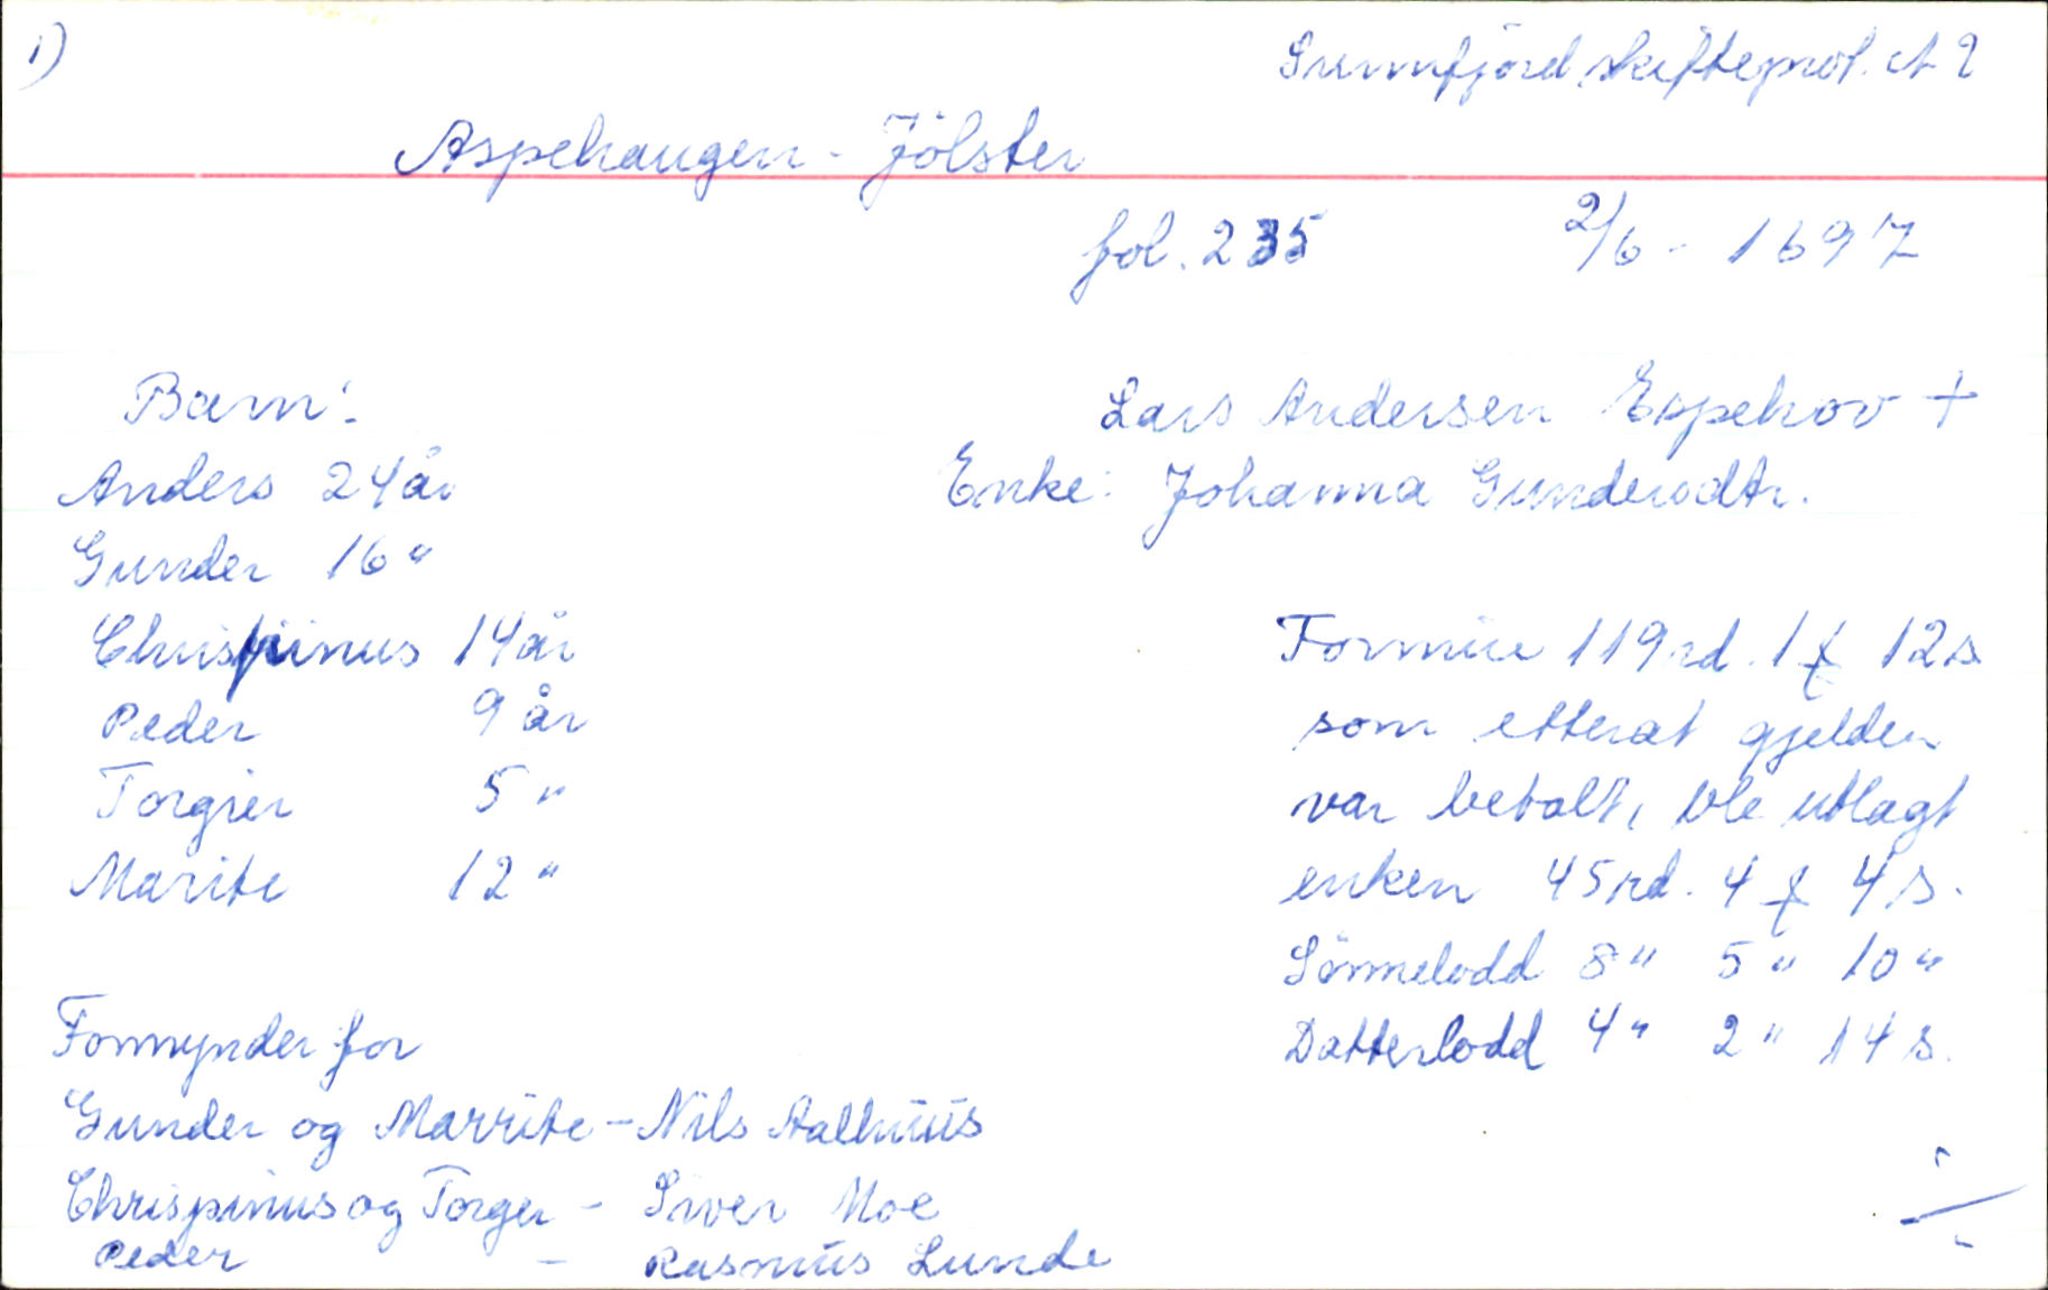 1)
Sunnfjord skifteprot. A 2
Aspehaugen - Jölster
fol. 235 2/6 - 1697
Barn:
Lars Andersen Espehov +
Anders 24 år
Enke: Johanna Gundersdtr.
Gunder 16 "
Chrispinus 14 år
Peder 9 år
Torgier 5 "
Marite 12 "
Formue 119 rd. 1 ƒ 12 s
som etterat gjelden
var betalt, ble utlagt
enken 45 rd. 4 ƒ 4 s.
Sönnelodd 8 " 5 " 10 "
Datterlodd 4 " 2 " 14 s.
Formynder for
Gunder og Marrite - Nils Aalhuus
Chrispinus og Torger - Siver Moe
Peder - Rasmus Lunde